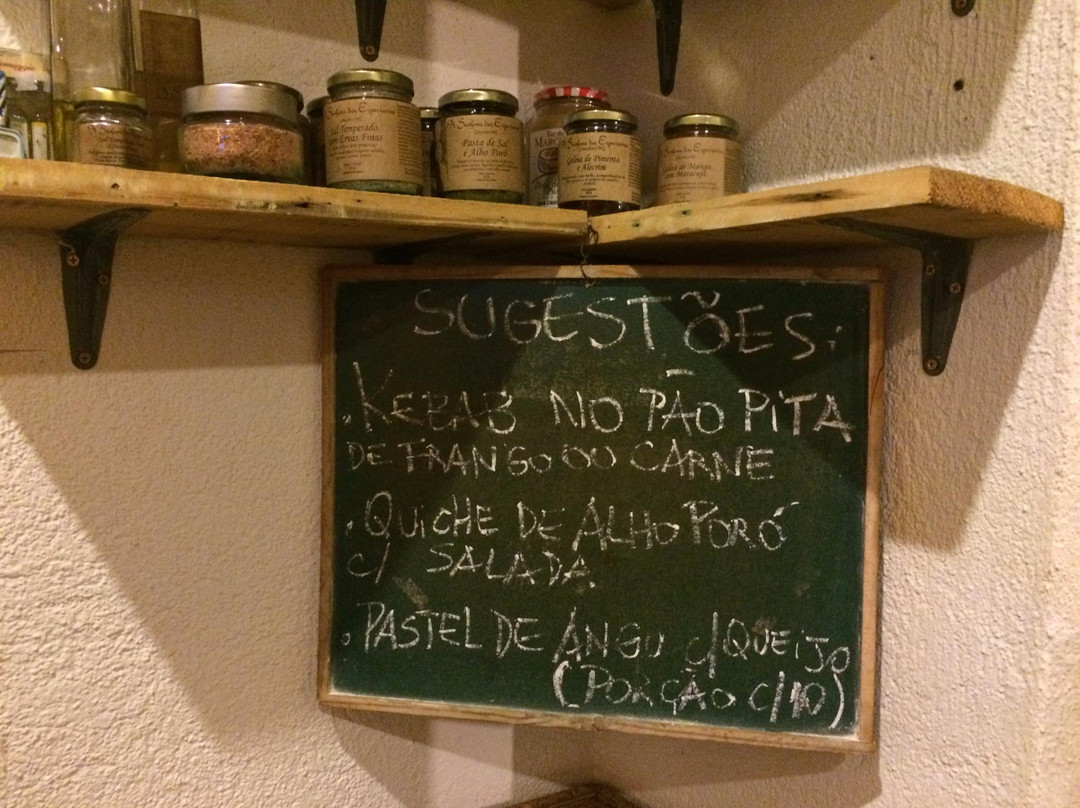 Sal Temperado
com Ervas Finas
Pasta de Sal
e Alho Poró
Geleia de Pimenta
e Alecrim
Geleia de Manga
com Maracujá
SUGESTÕES:
. KEBAB NO PÃO PITA
DE FRANGO OU CARNE
. QUICHE DE ALHO PORÓ
C/ SALADA
. PASTEL DE ANGU C/QUEIJO
(PORÇÃO C/10)